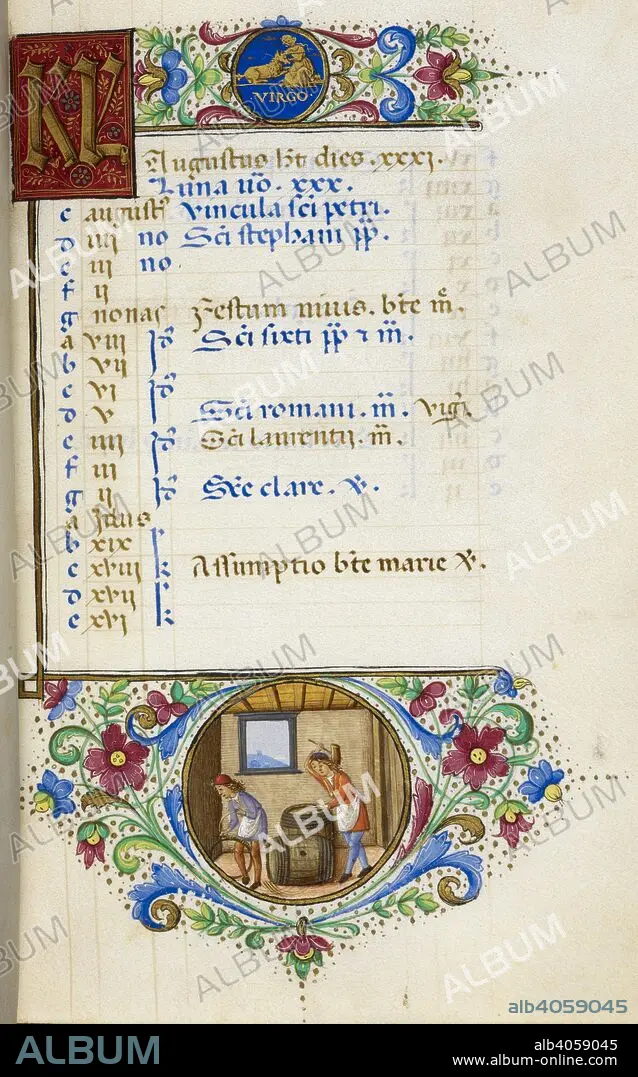 VIRGO
KL
Augustus ht dies . xxxi .
Luna vo . xxx .
c august9 vincula sci petri .
d iiii no Sci stephani pp .
e iii no
f ii
g nonas Festum nivis . bte m .
a viii id
Sci sixti pp & m .
b vii
c vi id
d v Sci romani . m . vigi .
e iiii id Sci laurentii . m .
f iii
g ii id Ste clare . v .
a idus
b xix k
c xviii k Assumptio bte marie v .
d xvii k
e xvi k
ALBUM
alb4059045
ALBUM
alb4059045
www.album-online.com